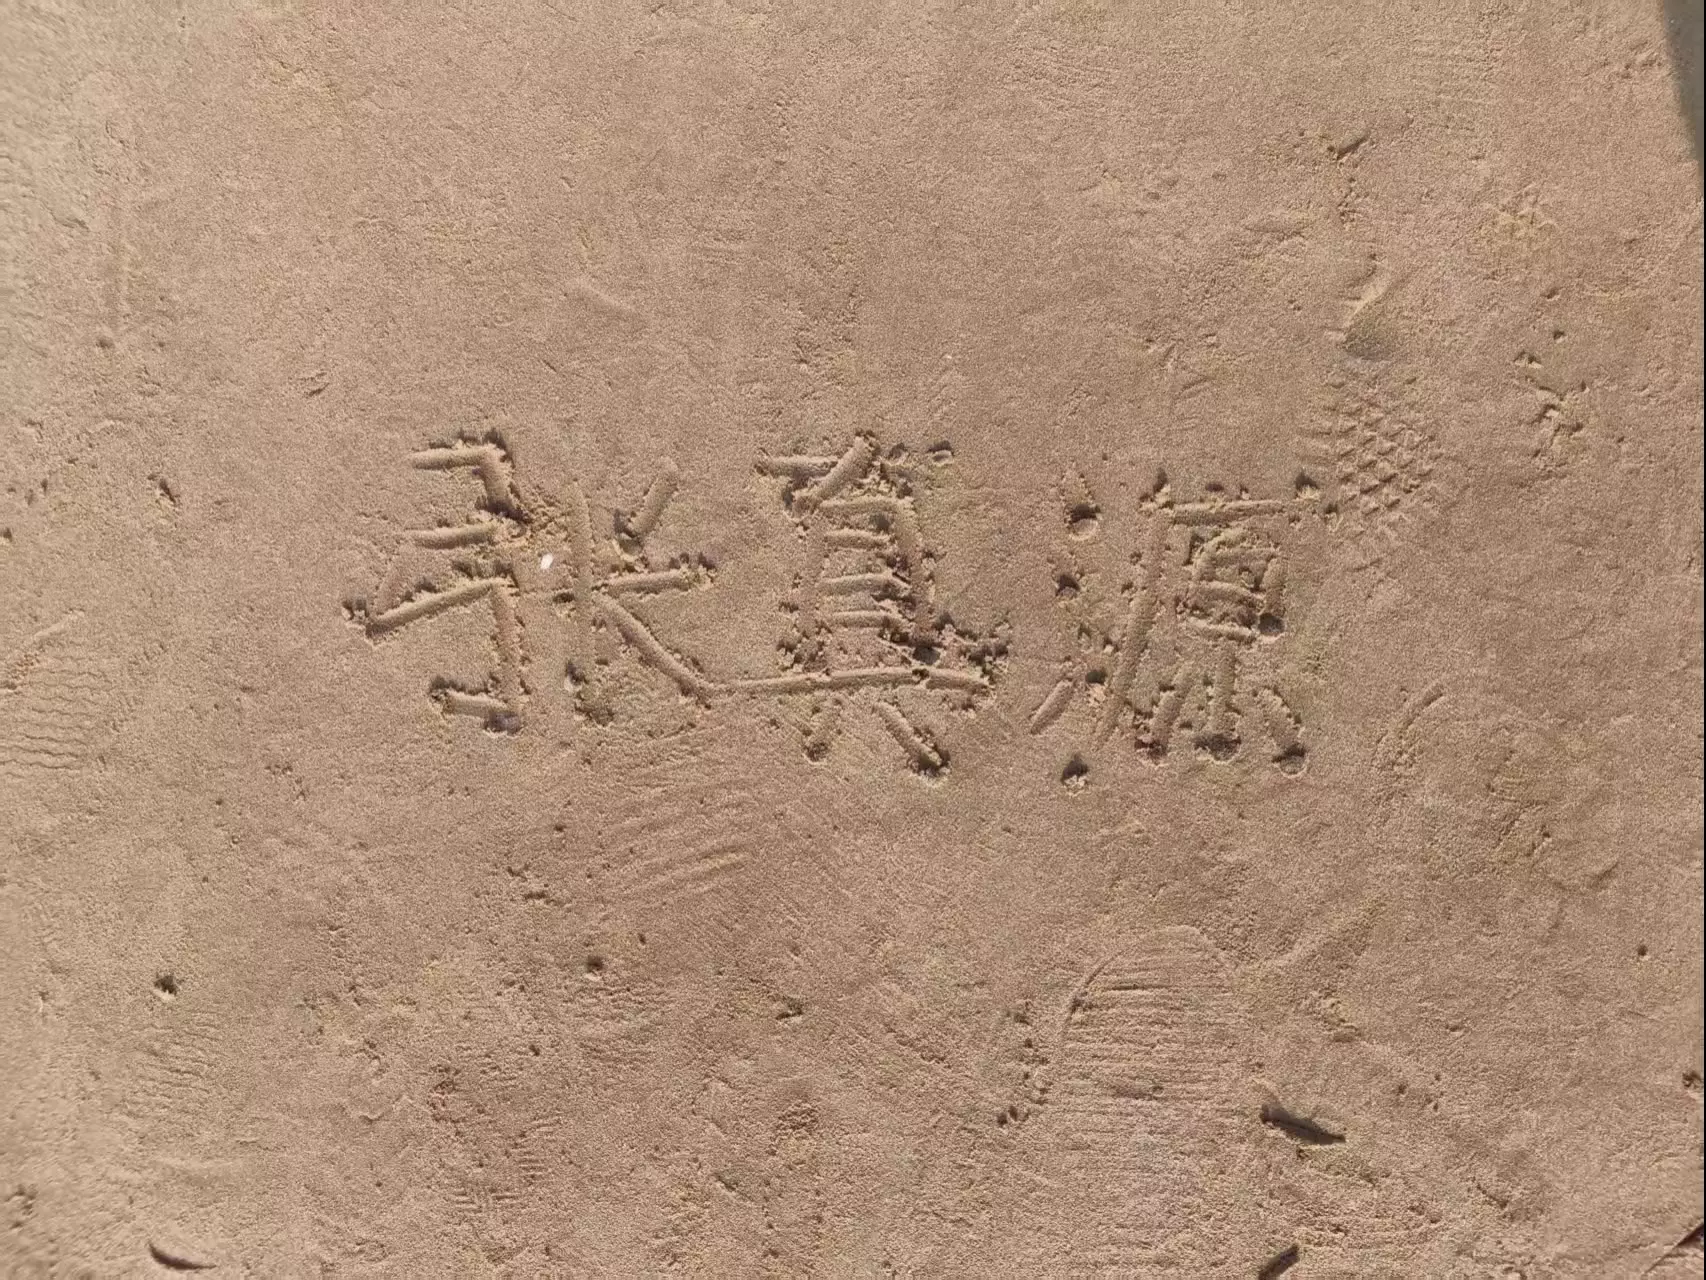 张真源